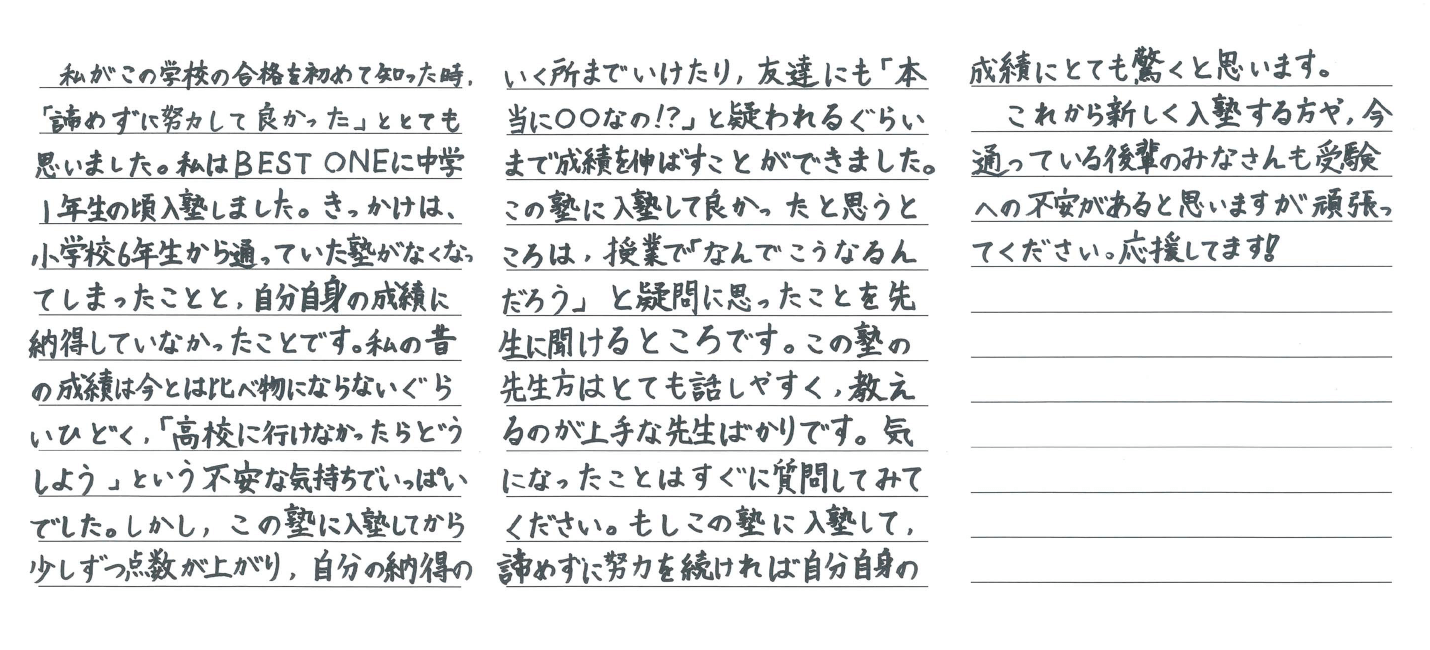 私がこの学校の合格を初めて知った時,
「諦めずに努力して良かった」ととても
思いました。私はBEST ONEに中学
1年生の頃入塾しました。きっかけは、
小学校6年生から通っていた塾がなくなっ
てしまったことと,自分自身の成績に
納得していなかったことです。私の昔
の成績は今とは比べ物にならないぐら
いひどく,「高校に行けなかったらどう
しよう」という不安な気持ちでいっぱい
でした。しかし,この塾に入塾してから
少しずつ点数が上がり,自分の納得の
いく所までいけたり,友達にも「本
当に〇〇なの!?」と疑われるぐらい
まで成績を伸ばすことができました。
この塾に入塾して良かったと思うと
ころは,授業で「なんでこうなるん
だろう」と疑問に思ったことを先
生に聞けるところです。この塾の
先生方はとても話しやすく,教え
るのが上手な先生ばかりです。気
になったことはすぐに質問してみて
ください。もしこの塾に入塾して,
諦めずに努力を続ければ自分自身の
成績にとても驚くと思います。
これから新しく入塾する方や,今
通っている後輩のみなさんも受験
への不安があると思いますが頑張っ
てください。応援してます!